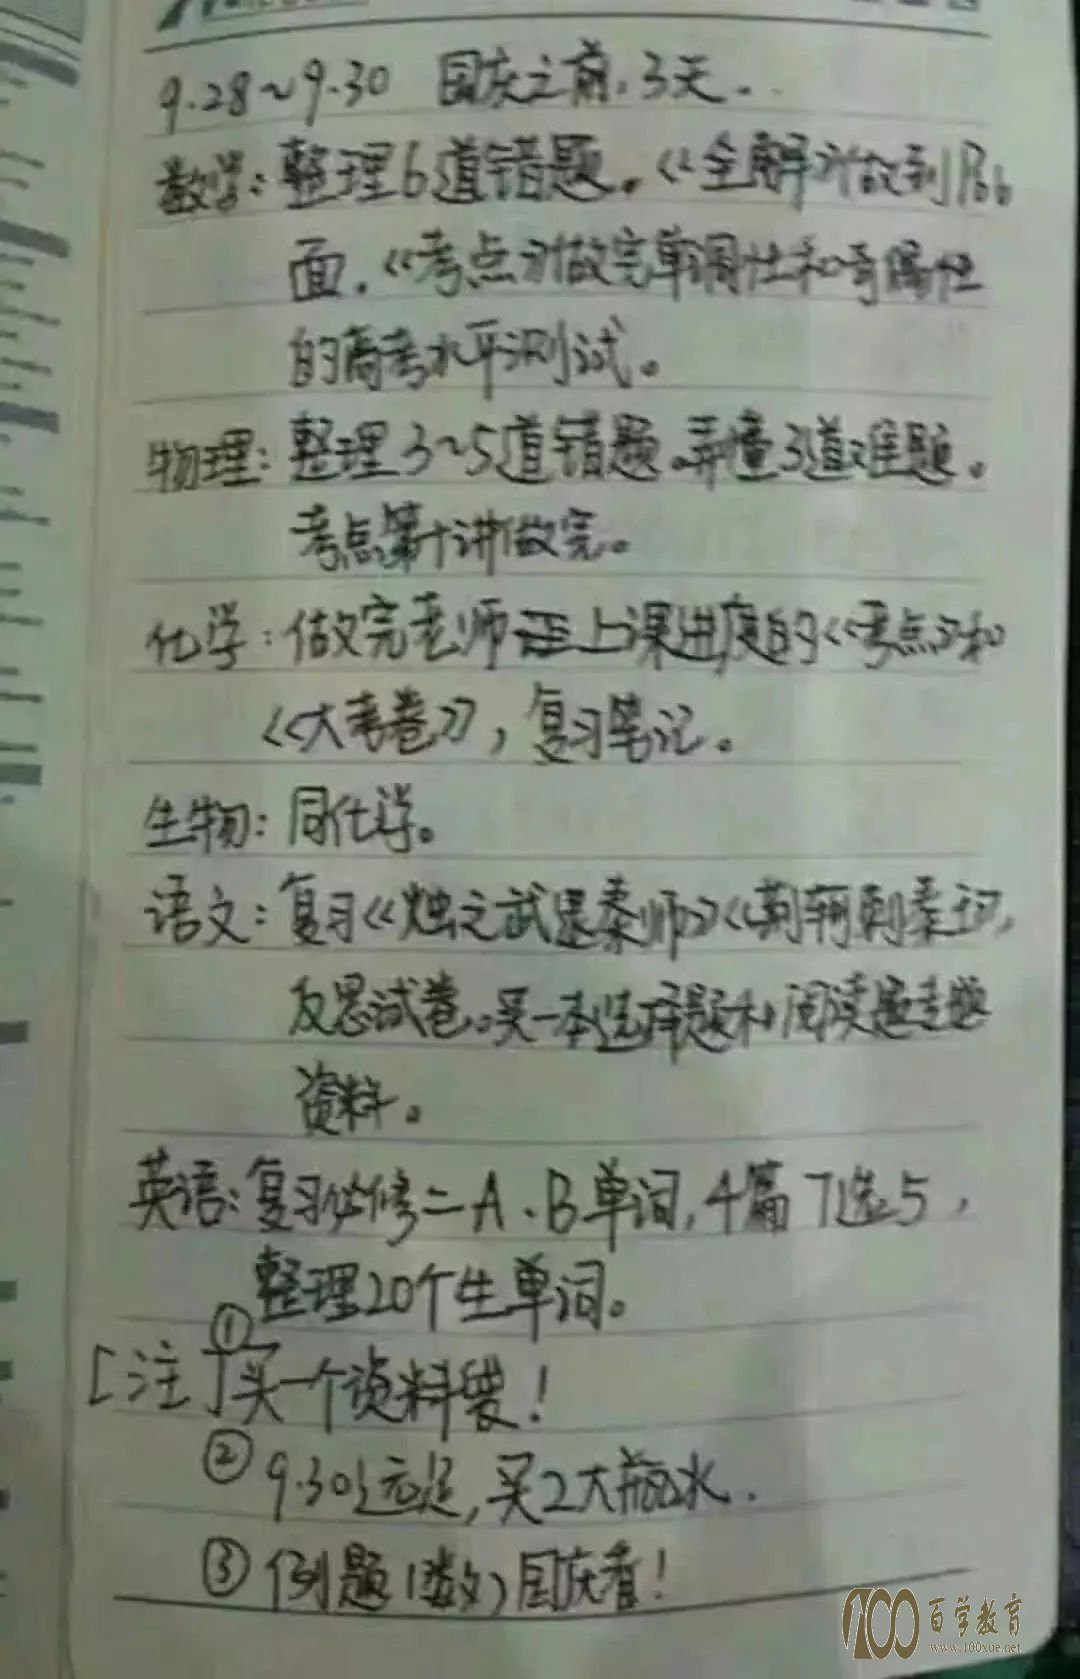 9.28~9.30 国庆之前,3天.
数学:整理6道错题。《全解》做到P66
面,《考点》做完单调性和奇偶性
的高考水平测试。
物理:整理3~5道错题.弄懂3道难题。
考点第十讲做完。
化学:做完老师上课进度的《考点》和
《大考卷》,复习笔记。
生物:同化学。
语文:复习《烛之武退秦师》《荆轲刺秦王》,
反思试卷。买一本选择题和阅读题专题
资料。
英语:复习必修二A、B单词,4篇7选5,
整理20个生单词。
[注]①买一个资料袋!
②9.30远足,买2大瓶水.
③例题(数)国庆看!
100百学教育
www.100xue.net